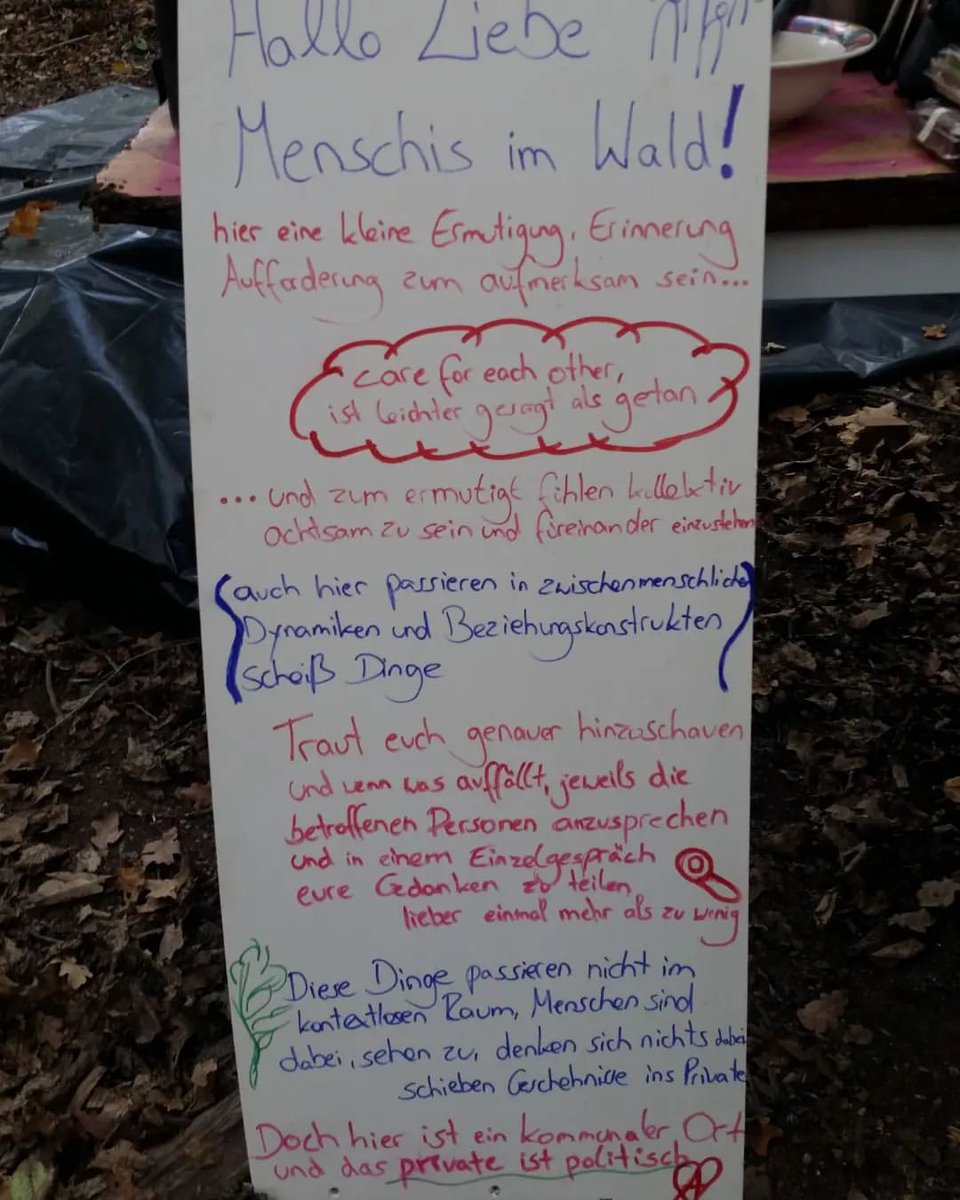 Hallo Liebe
Menschis im Wald!
hier eine kleine Ermutigung, Erinnerung
Aufforderung zum aufmerksam sein...
care for each other,
ist leichter gesagt als getan
... und zum ermutigt fühlen kollektiv
achtsam zu sein und füreinander einzustehen
auch hier passieren in zwischenmenschliche
Dynamiken und Beziehungskonstrukten
scheiß Dinge
Traut euch genauer hinzuschauen
und wenn was auffällt, jeweils die
betroffenen Personen anzusprechen
und in einem Einzelgespräch
eure Gedanken zu teilen,
lieber einmal mehr als zu wenig
Diese Dinge passieren nicht im
kontextlosen Raum, Menschen sind
dabei, sehen zu, denken sich nichts dabei
schieben Geschehnise ins Private
Doch hier ist ein kommunaler Ort
und das private ist politisch